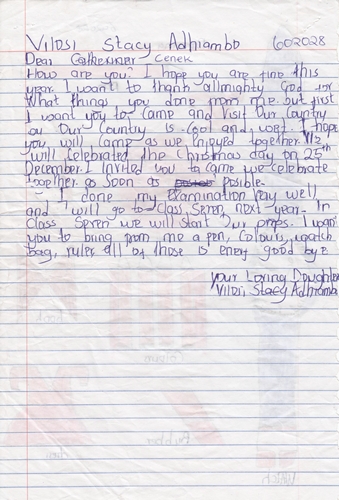 Vilosi Stacy Adhiambo 602028
Dear Catheriner Cenek
How are you? I hope you are fine this
year. I want to thank allmighty God for
What things you done from me. but first
I want you to came and Visit Our Country
Our Country is cool and wet. I hope
you will came as we enjoyed together. We
will celebrated the Christmas day on 25th
December. I Invited you to came we celebrate
together as soon as posible.
I done my Examination Very well
and I will go to Class Seren next year. In
Class Seren we will start Our preps. I want
you to bring from me a pen, Colours, watch
bag, ruler all of those is enery good bye
your Loving Doughter
Vilosi Stacy Adhiambo